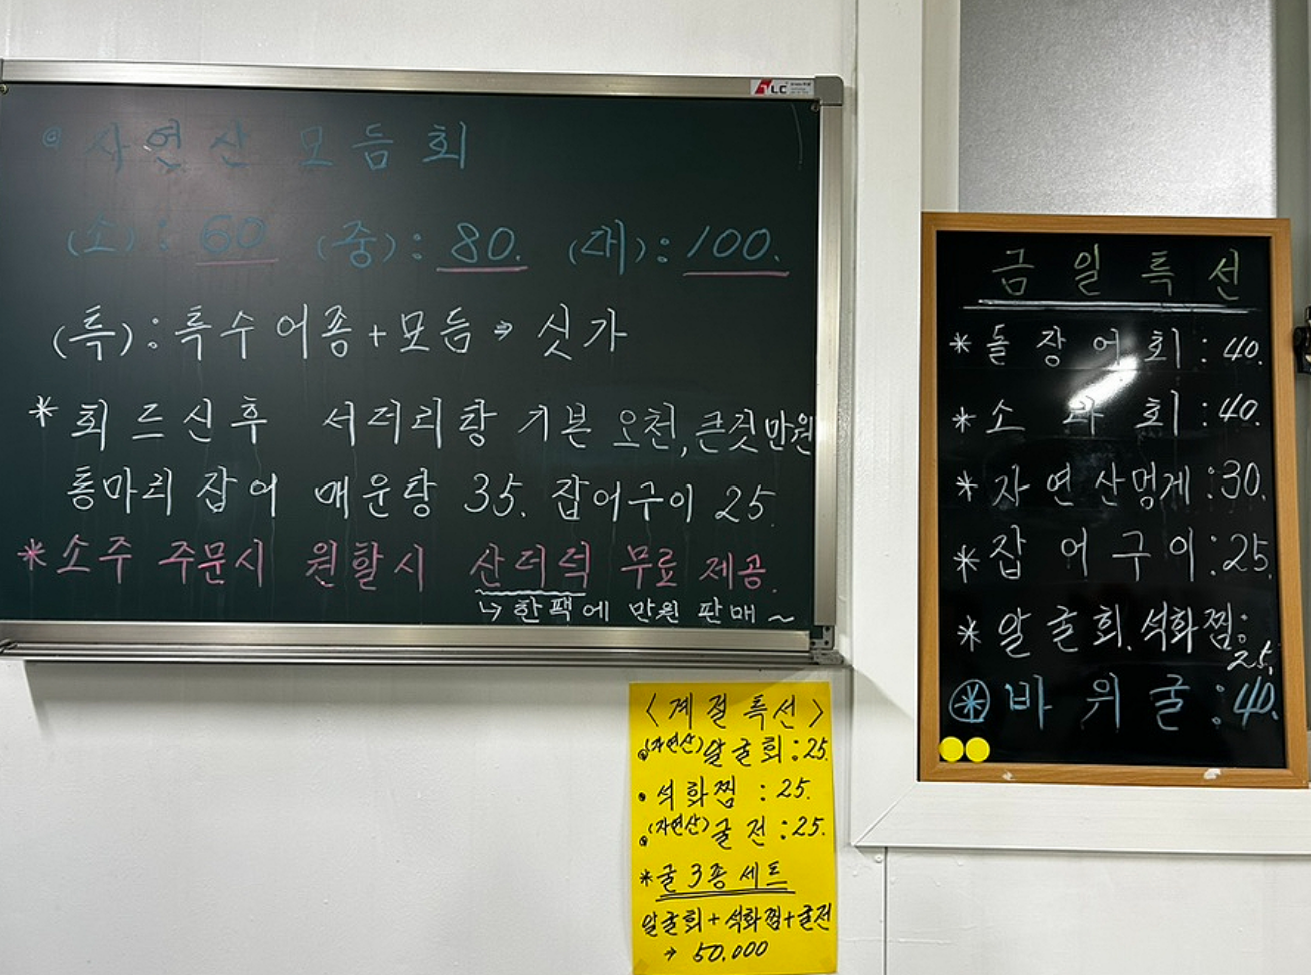 ◎ 자연산 모듬회
(소): 60 (중): 80. (대): 100.
(특): 특수어종+모듬→ 싯가
* 회 드신후 서더리탕 기본 오천,큰것만원
통마리 잡어 매운탕 35. 잡어구이 25.
* 소주 주문시 원할시 산더덕 무료 제공.
↳ 한팩에 만원 판매~
TLC
금일특선
* 돌장어회: 40.
* 소라회: 40.
* 자연산멍게: 30.
* 잡어구이: 25.
* 알굴회, 석화찜: 25.
* 바위굴: 40.
<계절특선>
(자연산)알굴회: 25.
• 석화찜: 25.
(자연산)굴전: 25.
* 굴3종세트
알굴회+석화찜+굴전
→ 50.000